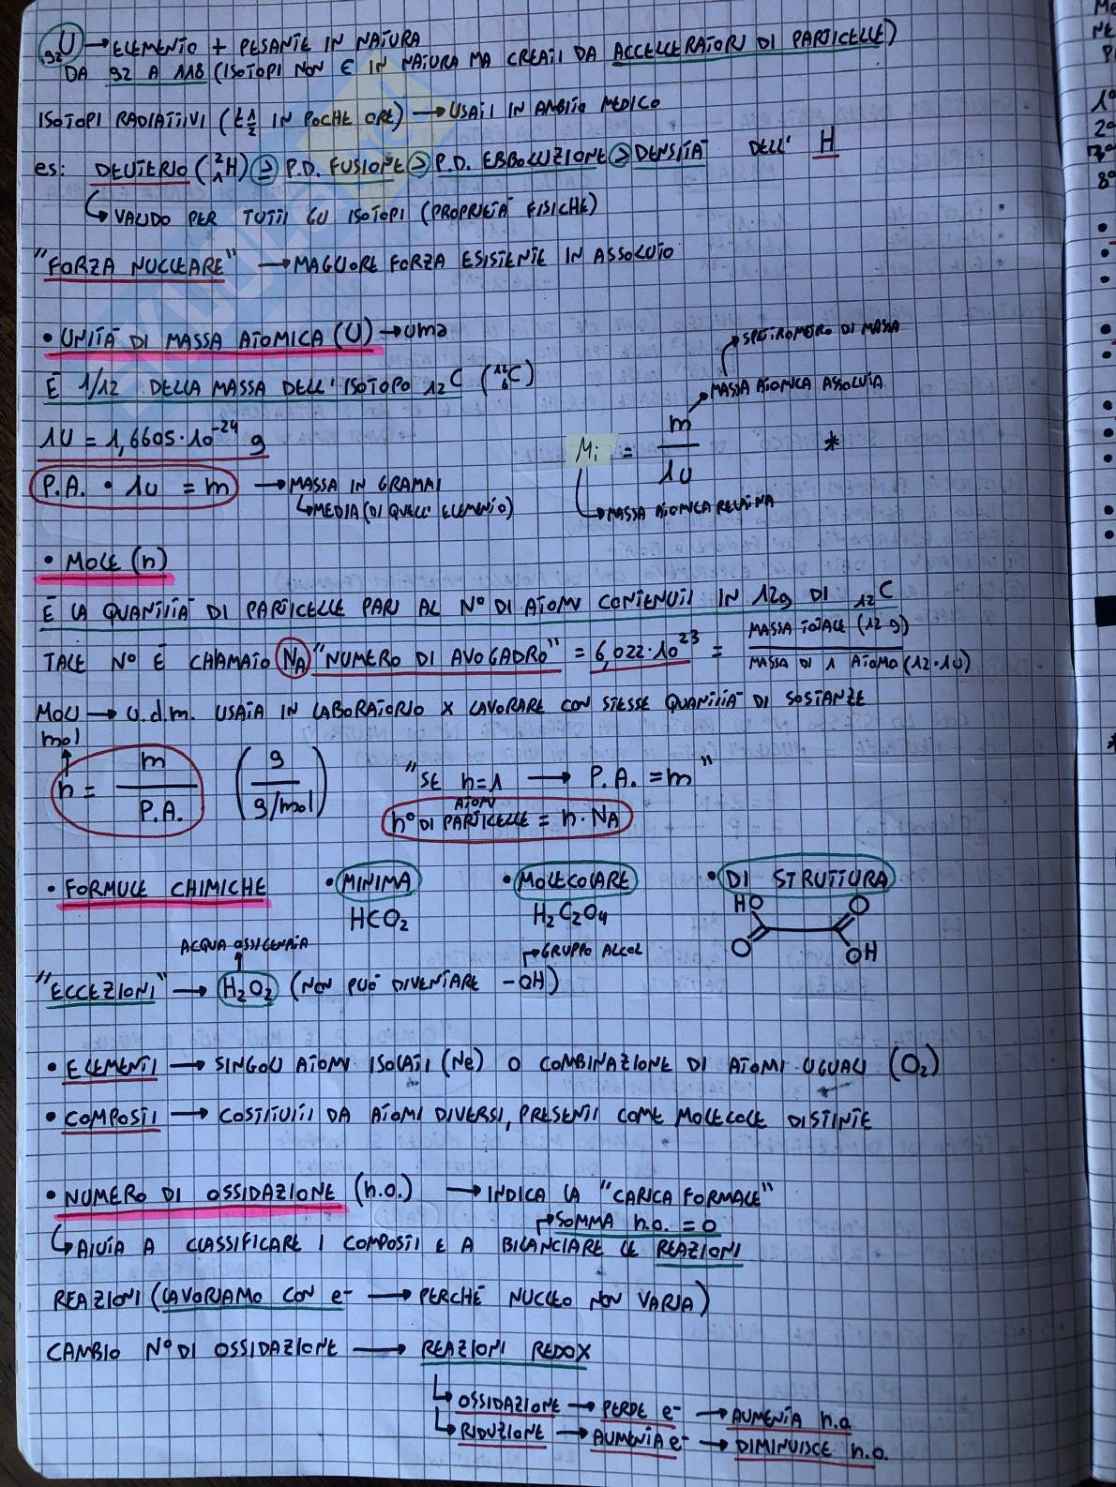 92U → ELEMENTO + PESANTE IN NATURA
DA 92 A 118 (ISOTOPI NON C'È IN NATURA MA CREATI DA ACCELLERATORI DI PARTICELLE)
ISOTOPI RADIATTIVI (t½ IN POCHE ORE) → USATI IN AMBITO MEDICO
es: DEUTERIO (²₁H) ≥ P.D. FUSIONE > P.D. EBBOLLIZIONE > DENSITÀ DELL' H
↳ VALIDO PER TUTTI GLI ISOTOPI (PROPRIETÀ FISICHE)
"FORZA NUCLEARE" → MAGGIORE FORZA ESISTENTE IN ASSOLUTO
• UNITÀ DI MASSA ATOMICA (U) → uma
È 1/12 DELLA MASSA DELL'ISOTOPO 12C (¹²₆C)
1U = 1,6605·10⁻²⁴ g
P.A. · 1U = m → MASSA IN GRAMMI
↳ MEDIA (DI QUELL' ELEMENTO)
SPETTROMETRO DI MASSA
MASSA ATOMICA ASSOLUTA
Mi = m / 1U *
MASSA ATOMICA RELATIVA
• MOLE (n)
È LA QUANTITÀ DI PARTICELLE PARI AL N° DI ATOMI CONTENUTI IN 12g DI 12C
TALE N° È CHIAMATO NA "NUMERO DI AVOGADRO" = 6,022·10²³ = MASSA TOTALE (12 g) / MASSA DI 1 ATOMO (12·1U)
MOLI → U.d.m. USATA IN LABORATORIO X LAVORARE CON STESSE QUANTITÀ DI SOSTANZE
mol
n = m / P.A. (g / g/mol) "SE n=1 → P.A. = m"
ATOMI
n° DI PARTICELLE = n · NA
• FORMULE CHIMICHE • MINIMA • MOLECOLARE • DI STRUTTURA
HCO2 H2C2O4 HO O O OH
ACQUA OSSIGENATA GRUPPO ALCOL
"ECCEZIONI" → H2O2 (NON PUÒ DIVENTARE -OH)
• ELEMENTI → SINGOLI ATOMI ISOLATI (Ne) O COMBINAZIONE DI ATOMI UGUALI (O2)
• COMPOSTI → COSTITUITI DA ATOMI DIVERSI, PRESENTI COME MOLECOLE DISTINTE
• NUMERO DI OSSIDAZIONE (n.o.) → INDICA LA "CARICA FORMALE"
SOMMA n.o. = 0
↳ AIUTA A CLASSIFICARE I COMPOSTI E A BILANCIARE LE REAZIONI
REAZIONI (LAVORIAMO CON e⁻ → PERCHÉ NUCLEO NON VARIA)
CAMBIO N° DI OSSIDAZIONE → REAZIONI REDOX
↳ OSSIDAZIONE → PERDE e⁻ → AUMENTA n.o.
↳ RIDUZIONE → AUMENTA e⁻ → DIMINUISCE n.o.